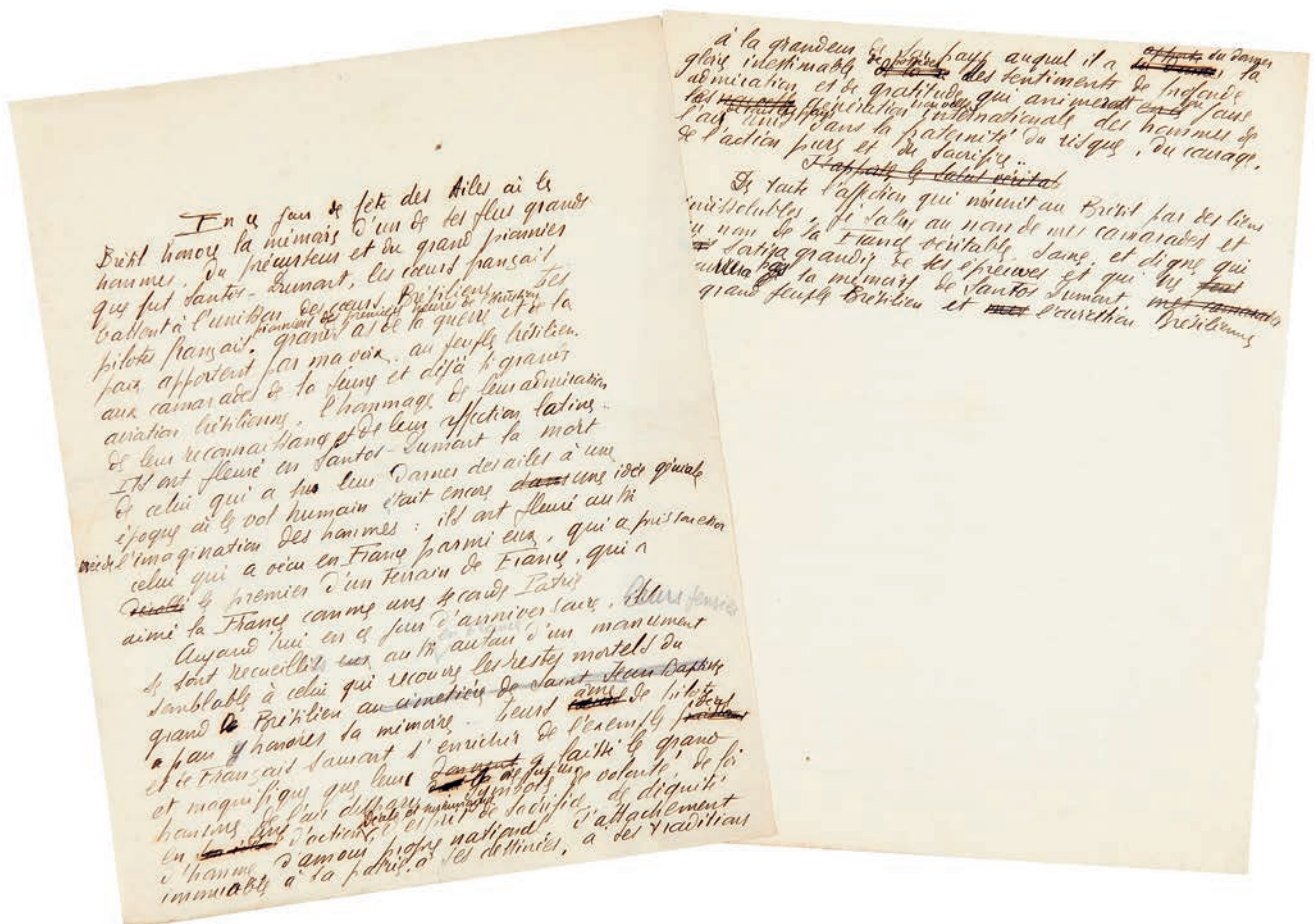 En ce jour de fête des Ailes où le
Brésil honore la mémoire d'un de ses plus grands
hommes, du précurseur et du grand pionnier
que fut Santos-Dumont, les cœurs français
battent à l'unisson des cœurs Brésiliens. Les
pilotes français, pionniers de premières heures de l'aviation
grands as de la guerre et de la
paix apportent par ma voix, au peuple brésilien,
aux camarades de la jeune et déjà si grande
aviation brésilienne, l'hommage de leur admiration
de leur reconnaissance et de leur affection latine.
Ils ont pleuré en Santos-Dumont la mort
de celui qui a su leur donner des ailes à une
époque où le vol humain était encore dans une idée géniale
de l'imagination des hommes : ils ont pleuré aussi
celui qui a vécu en France parmi eux, qui a pris son essor
décollé le premier d'un terrain de France, qui a
aimé la France comme une seconde Patrie
Aujourd'hui en ce jour d'anniversaire, leurs pensées
se sont recueillies aussi autour d'un monument
semblable à celui qui recouvre les restes mortels du
grand Brésilien au cimetière de Saint Jean Baptiste
pour y honorer sa mémoire. Leurs âmes de pilotes
et de Français sauront s'enrichir de l'exemple
et magnifique que leur a laissé le grand
homme de l'air disparu, symbole de volonté, de foi
en d'action, d'esprit de sacrifice, de dignité
d'homme, d'amour propre national, d'attachement
immuable à sa patrie, à ses destinées, à ses traditions
à la grandeur de son pays auquel il a su donner la
gloire inestimable des sentiments de profonde
admiration et de gratitude qui animeront
les génération nouvelle internationale des hommes de
l'air unis dans la fraternité du risque, du courage,
de l'action pure et du sacrifice..
J'apporte le salut véritab
De toute l'affection qui m'unit au Brésil par des liens
indissolubles, je salue au nom de mes camarades et
au nom de la France véritable, saine, et digne qui
sortira grandie de ses épreuves et qui ne
oubliera pas la mémoire de Santos Dumont, mes camarades
grand peuple Brésilien et l'aviation Brésilienne